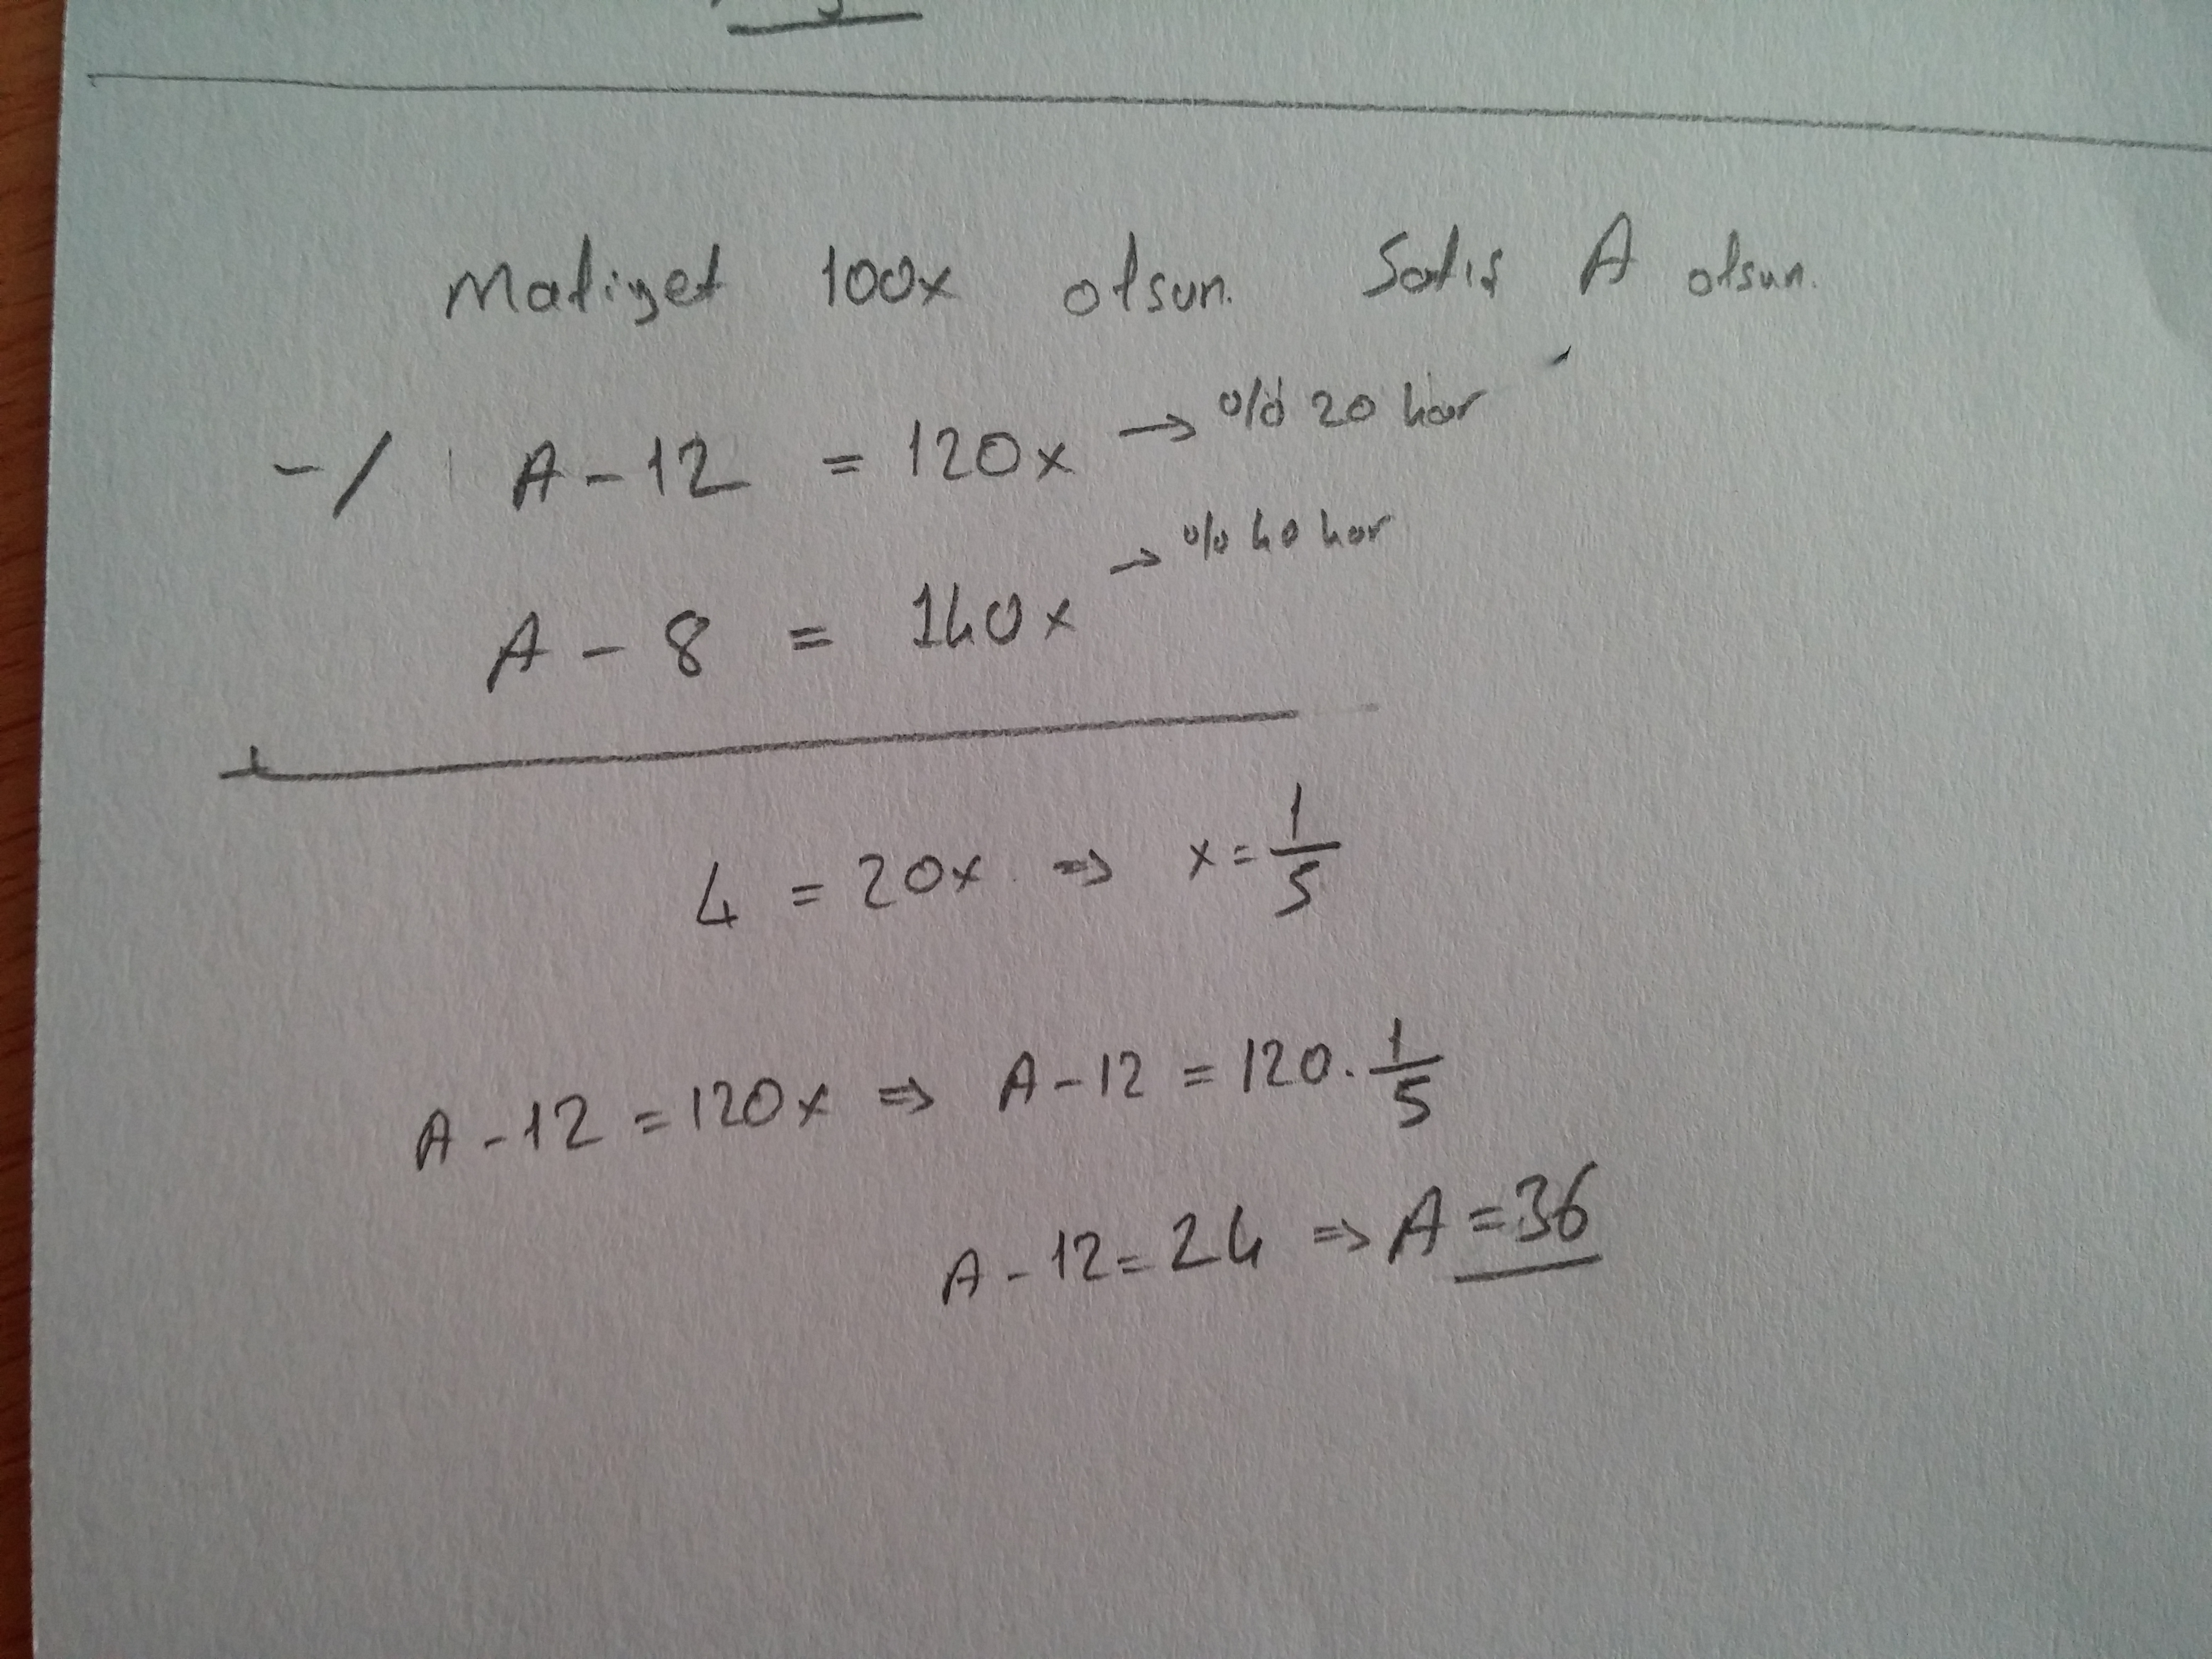 Maliyet 100x olsun. Satış A olsun.
-/ A - 12 = 120x → %20 kar
A - 8 = 140x → %40 kar
4 = 20x ⇒ x = 1/5
A - 12 = 120x ⇒ A - 12 = 120 . 1/5
A - 12 = 24 ⇒ A = 36